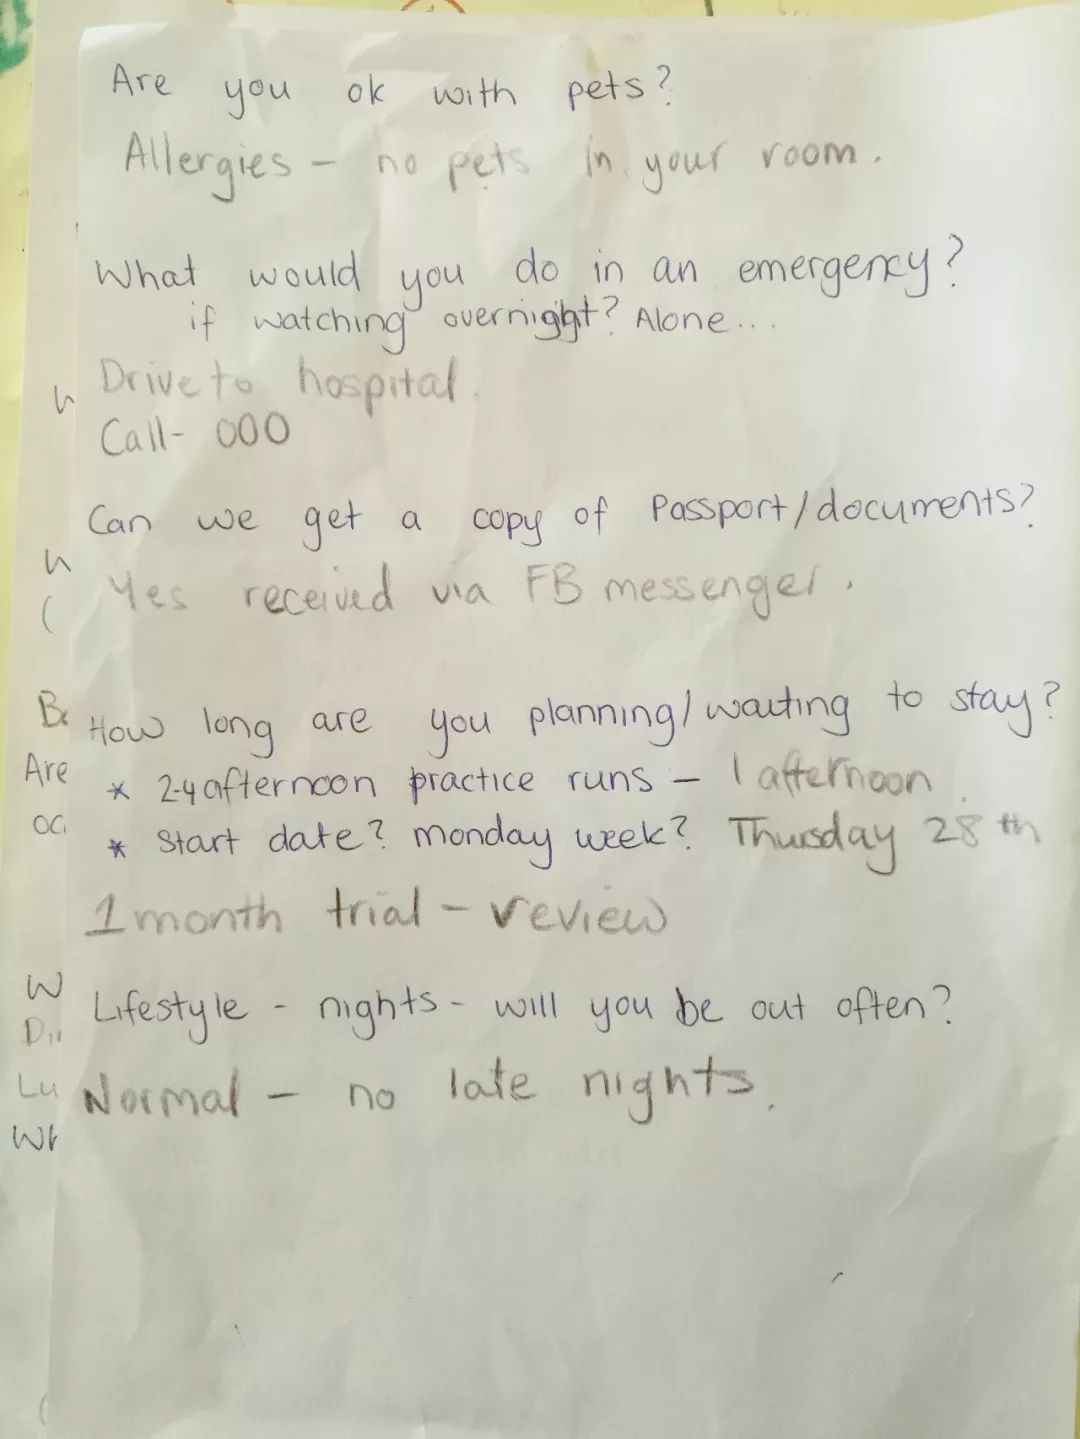 Are you ok with pets?
Allergies - no pets in your room.
What would you do in an emergency?
if watching overnight? Alone...
Drive to hospital.
Call- 000
Can we get a copy of Passport/documents?
Yes received via FB messenger.
How long are you planning/waiting to stay?
* 2-4 afternoon practice runs - 1 afternoon
* Start date? monday week? Thursday 28th
1 month trial - review
Lifestyle - nights - will you be out often?
Normal - no late nights.
Are